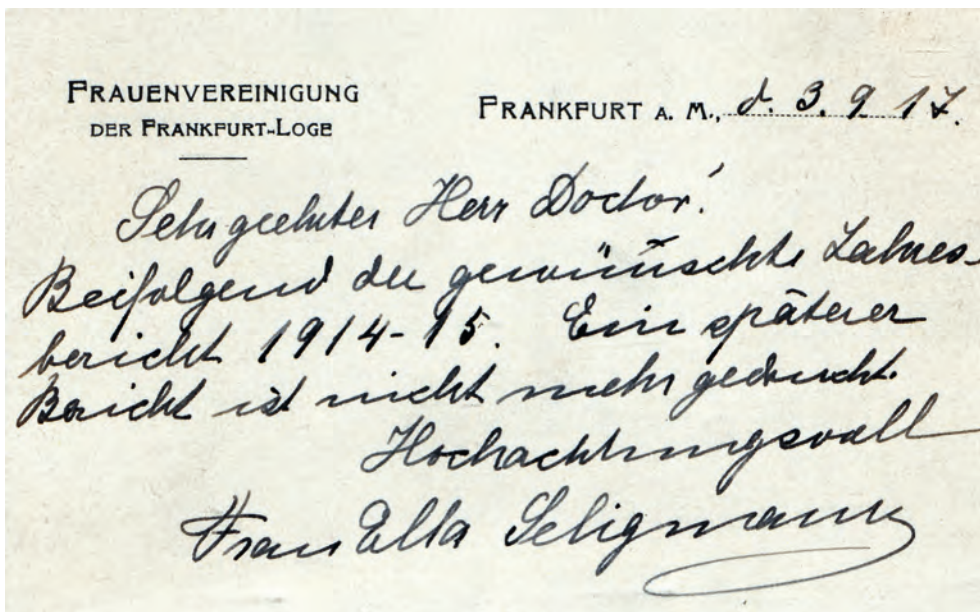 FRAUENVEREINIGUNG
DER FRANKFURT-LOGE
FRANKFURT A. M., d. 3. 9. 17.
Sehr geehrter Herr Doctor!
Beifolgend der gewünschte Jahres-
bericht 1914-15. Ein späterer
Bericht ist nicht mehr gedruckt.
Hochachtungsvoll
Frau Ella Seligmann